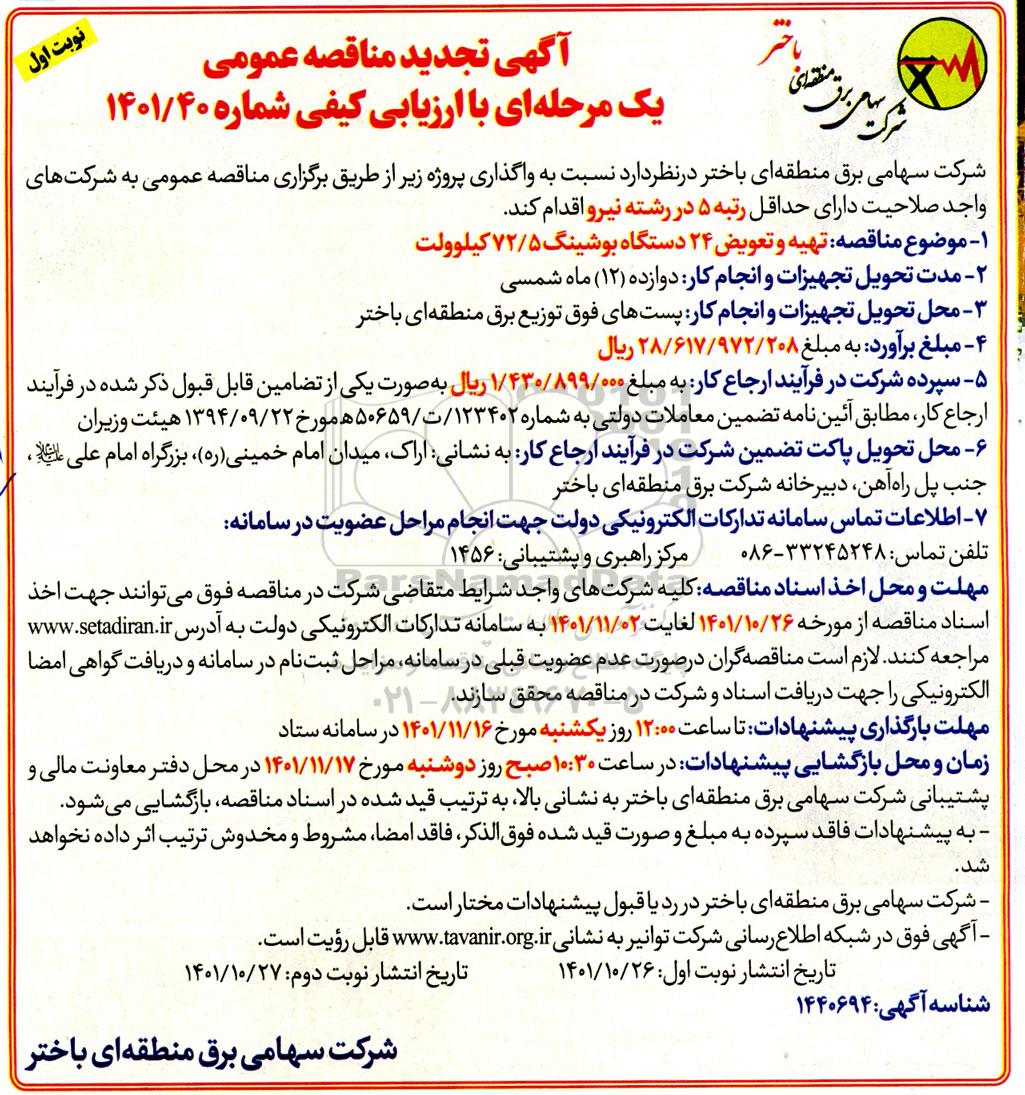 نوبت اول
باختر
شرکت سهامی برق منطقه‌ای
آگهی تجدید مناقصه عمومی
یک مرحله‌ای با ارزیابی کیفی شماره ۱۴۰۱/۴۰
شرکت سهامی برق منطقه‌ای باختر درنظردارد نسبت به واگذاری پروژه زیر از طریق برگزاری مناقصه عمومی به شرکت‌های
واجد صلاحیت دارای حداقل رتبه ۵ در رشته نیرو اقدام کند.
۱- موضوع مناقصه: تهیه و تعویض ۲۴ دستگاه بوشینگ ۷۲/۵ کیلوولت
۲- مدت تحویل تجهیزات و انجام کار: دوازده (۱۲) ماه شمسی
۳- محل تحویل تجهیزات و انجام کار: پست‌های فوق توزیع برق منطقه‌ای باختر
۴- مبلغ برآورد: به مبلغ ۲۸/۶۱۷/۹۷۲/۲۰۸ ریال
۵- سپرده شرکت در فرآیند ارجاع کار: به مبلغ ۱/۴۳۰/۸۹۹/۰۰۰ ریال به‌صورت یکی از تضامین قابل قبول ذکر شده در فرآیند
ارجاع کار، مطابق آئین‌نامه تضمین معاملات دولتی به شماره ۱۲۳۴۰۲/ت/۵۰۶۵۹ه مورخ ۱۳۹۴/۰۹/۲۲ هیئت وزیران
۶- محل تحویل پاکت تضمین شرکت در فرآیند ارجاع کار: به نشانی: اراک، میدان امام خمینی(ره)، بزرگراه امام علی علیه‌السلام،
جنب پل راه‌آهن، دبیرخانه شرکت برق منطقه‌ای باختر
۷- اطلاعات تماس سامانه تدارکات الکترونیکی دولت جهت انجام مراحل عضویت در سامانه:
تلفن تماس: ۳۳۲۴۵۲۴۸-۰۸۶ مرکز راهبری و پشتیبانی: ۱۴۵۶
مهلت و محل اخذ اسناد مناقصه: کلیه شرکت‌های واجد شرایط متقاضی شرکت در مناقصه فوق می‌توانند جهت اخذ
اسناد مناقصه از مورخه ۱۴۰۱/۱۰/۲۶ لغایت ۱۴۰۱/۱۱/۰۲ به سامانه تدارکات الکترونیکی دولت به آدرس www.setadiran.ir
مراجعه کنند. لازم است مناقصه‌گران درصورت عدم عضویت قبلی در سامانه، مراحل ثبت‌نام در سامانه و دریافت گواهی امضا
الکترونیکی را جهت دریافت اسناد و شرکت در مناقصه محقق سازند.
مهلت بارگذاری پیشنهادات: تا ساعت ۱۲:۰۰ روز یکشنبه مورخ ۱۴۰۱/۱۱/۱۶ در سامانه ستاد
زمان و محل بازگشایی پیشنهادات: در ساعت ۱۰:۳۰ صبح روز دوشنبه مورخ ۱۴۰۱/۱۱/۱۷ در محل دفتر معاونت مالی و
پشتیبانی شرکت سهامی برق منطقه‌ای باختر به نشانی بالا، به ترتیب قید شده در اسناد مناقصه، بازگشایی می‌شود.
- به پیشنهادات فاقد سپرده به مبلغ و صورت قید شده فوق‌الذکر، فاقد امضا، مشروط و مخدوش ترتیب اثر داده نخواهد
شد.
- شرکت سهامی برق منطقه‌ای باختر در رد یا قبول پیشنهادات مختار است.
- آگهی فوق در شبکه اطلاع‌رسانی شرکت توانیر به نشانی www.tavanir.org.ir قابل رؤیت است.
تاریخ انتشار نوبت اول: ۱۴۰۱/۱۰/۲۶ تاریخ انتشار نوبت دوم: ۱۴۰۱/۱۰/۲۷
شناسه آگهی: ۱۴۴۰۶۹۴
شرکت سهامی برق منطقه‌ای باختر
ParsNamadData
۰۲۱-۸۸۳۴۹۶۷۰-۵